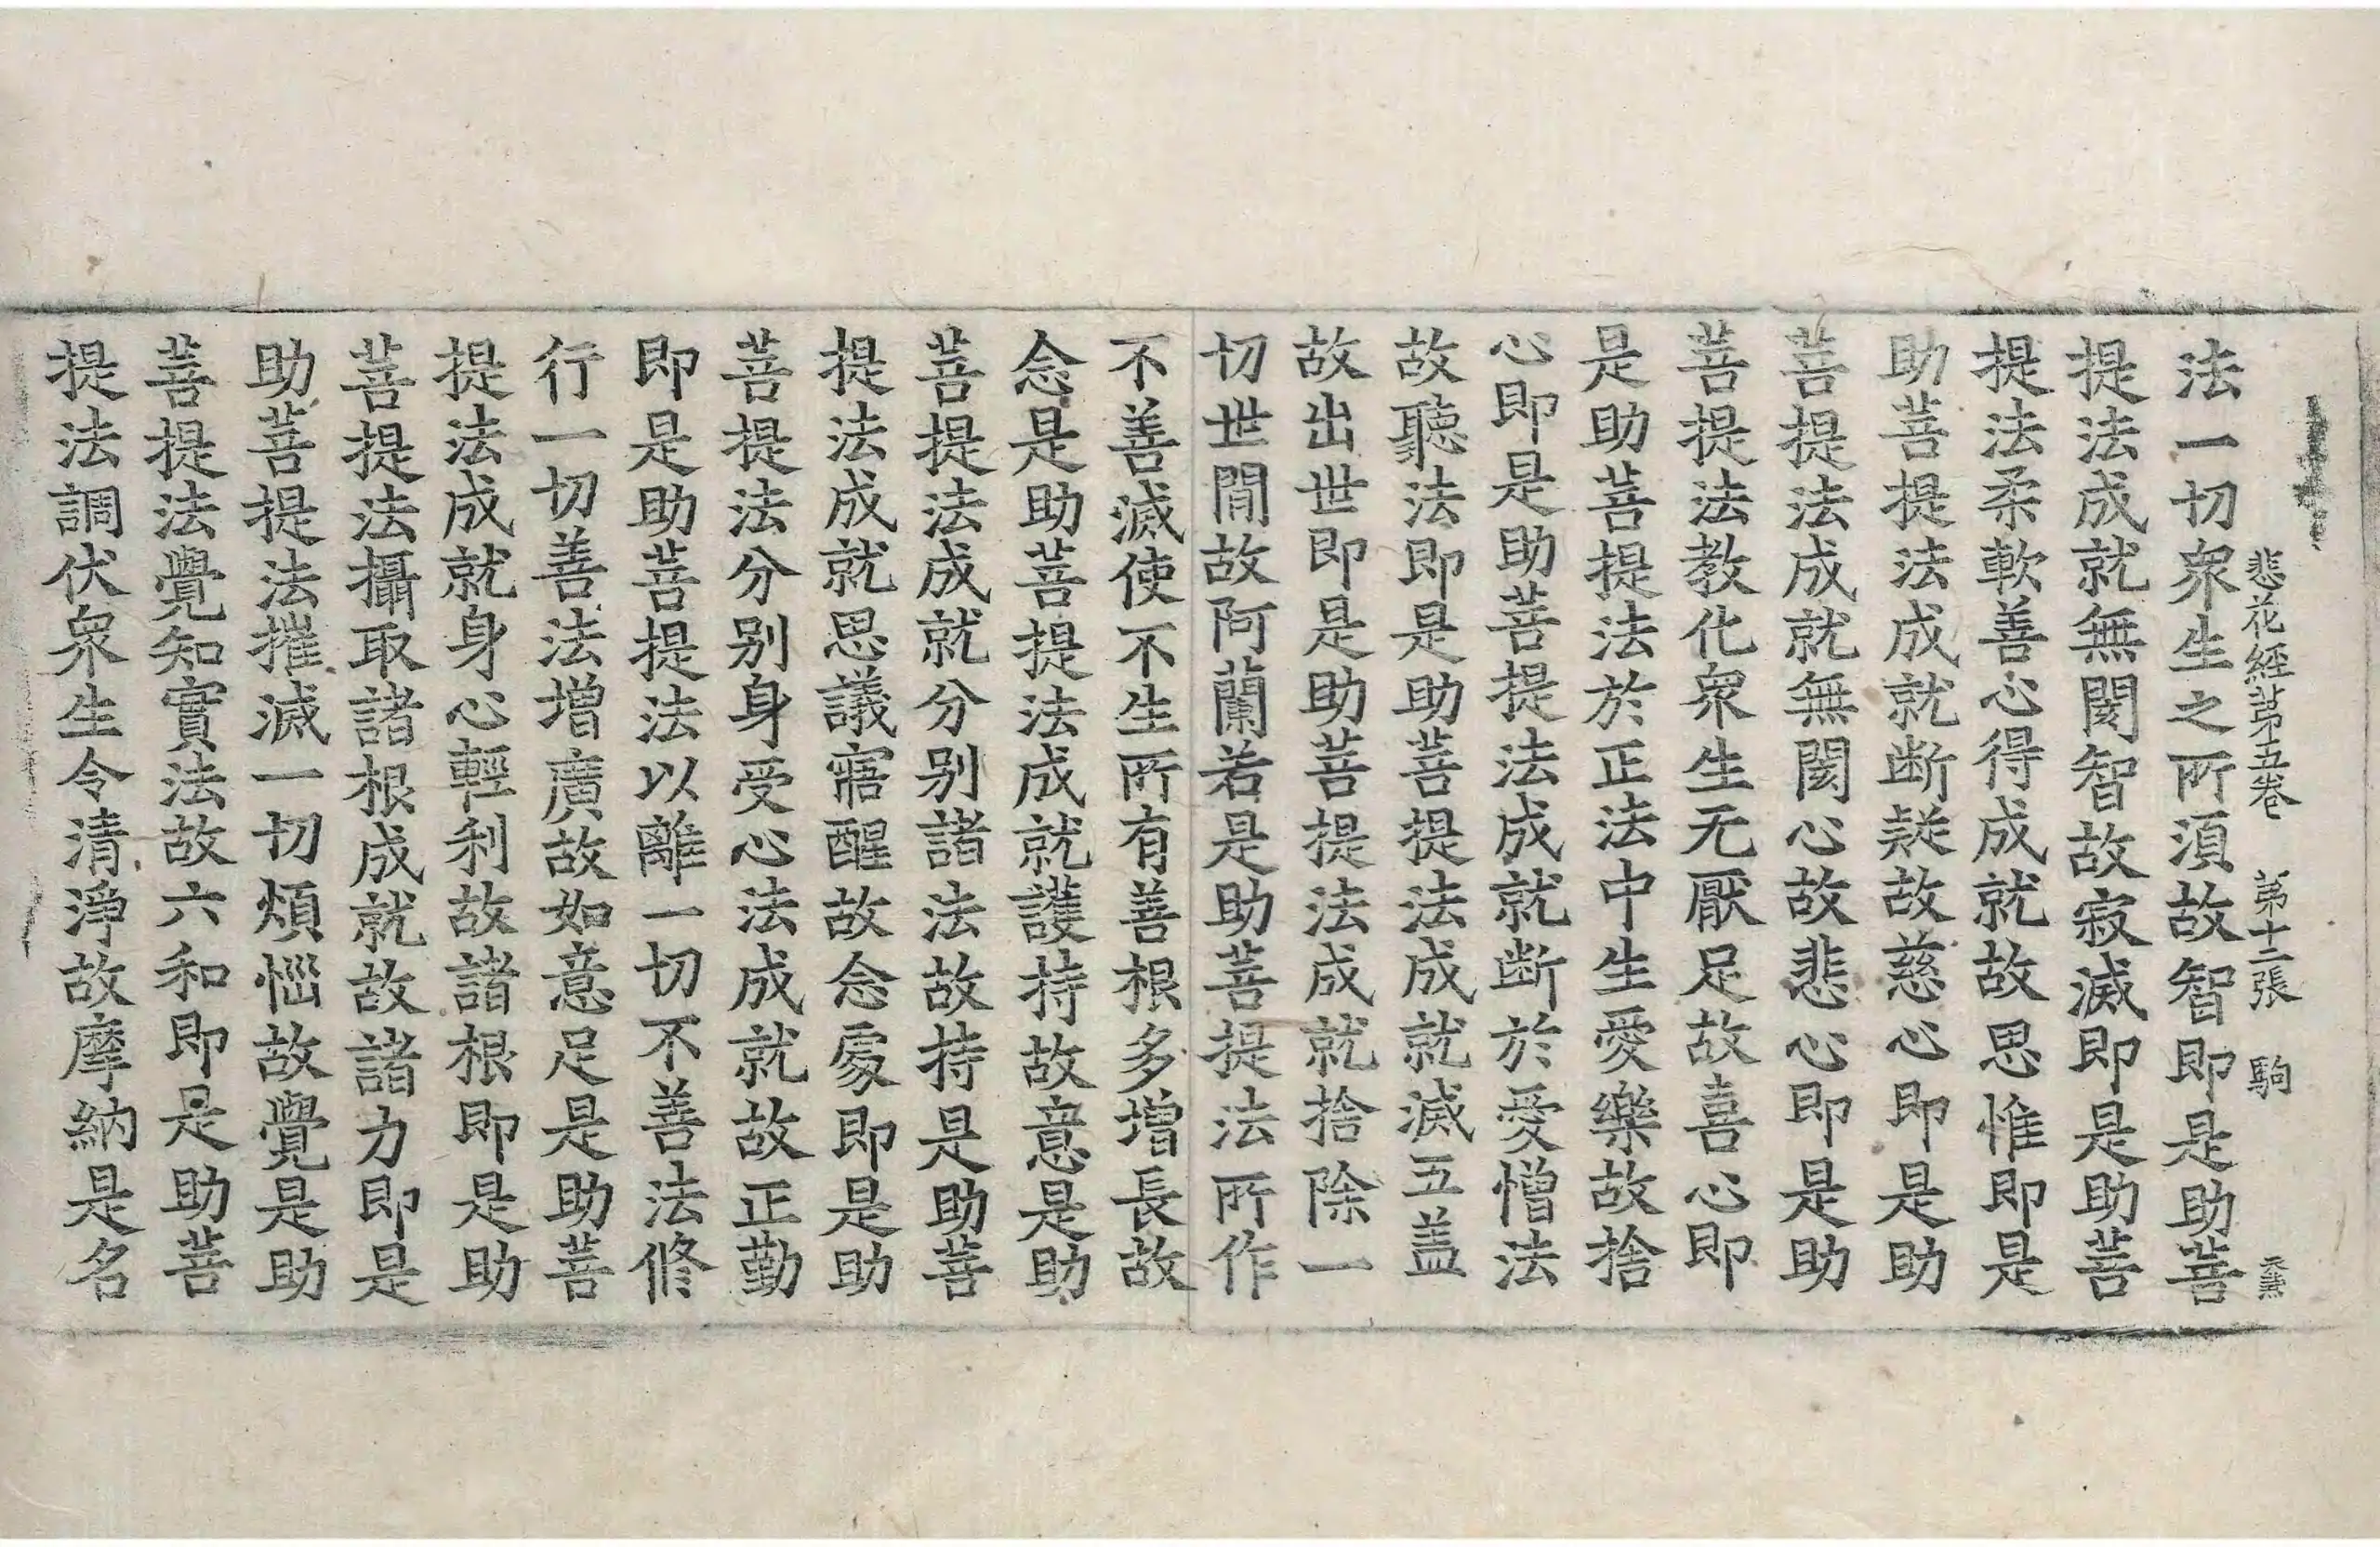 悲花經苐五卷 第十二張 駒
法一切衆生之所須故智即是助菩
提法成就無閡智故寂滅即是助菩
提法柔軟善心得成就故思惟即是
助菩提法成就断疑故慈心即是助
菩提法成就無閡心故悲心即是助
菩提法教化衆生无厭足故喜心即
是助菩提法於正法中生愛樂故捨
心即是助菩提法成就断於愛憎法
故聽法即是助菩提法成就滅五盖
故出世即是助菩提法成就捨除一
切世間故阿蘭若是助菩提法所作
不善滅使不生所有善根多增長故
念是助菩提法成就護持故意是助
菩提法成就分别諸法故持是助菩
提法成就思議寤醒故念處即是助
菩提法分别身受心法成就故正勤
即是助菩提法以離一切不善法修
行一切善法增廣故如意足是助菩
提法成就身心輕利故諸根即是助
菩提法攝取諸根成就故諸力即是
助菩提法摧滅一切煩惱故覺是助
菩提法覺知實法故六和即是助菩
提法調伏衆生令清淨故摩納是名